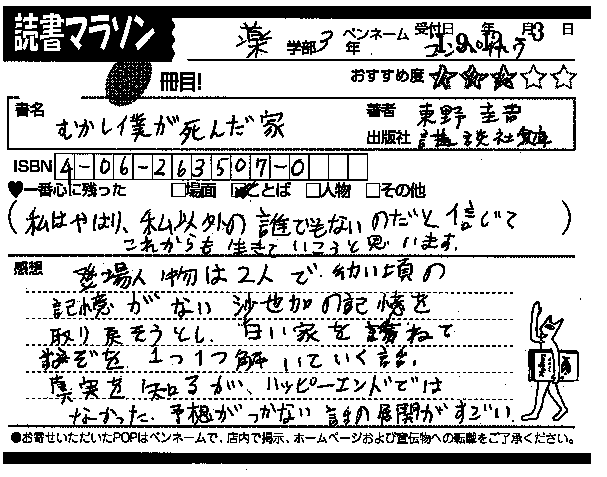 読書マラソン
薬 学部 3 年 ペンネーム
受付日 年 月 日
19.12.3
冊目!
おすすめ度 ★★★☆☆
書名 むかし僕が死んだ家
著者 東野圭吾
出版社 講談社文庫
ISBN 4-06-263507-0
♥一番心に残った □場面 ☑ことば □人物 □その他
(私はやはり、私以外の誰でもないのだと信じて
これからも生きていこうと思います。)
感想 登場人物は2人で、幼い頃の
記憶がない沙也加の記憶を
取り戻そうとし、白い家を訪ねて
謎を1つ1つ解いていく話。
真実を知るが、ハッピーエンドでは
なかった。予想がつかない話の展開がすごい。
●お寄せいただいたPOPはペンネームで、店内で掲示、ホームページおよび宣伝物への転載をご了承ください。